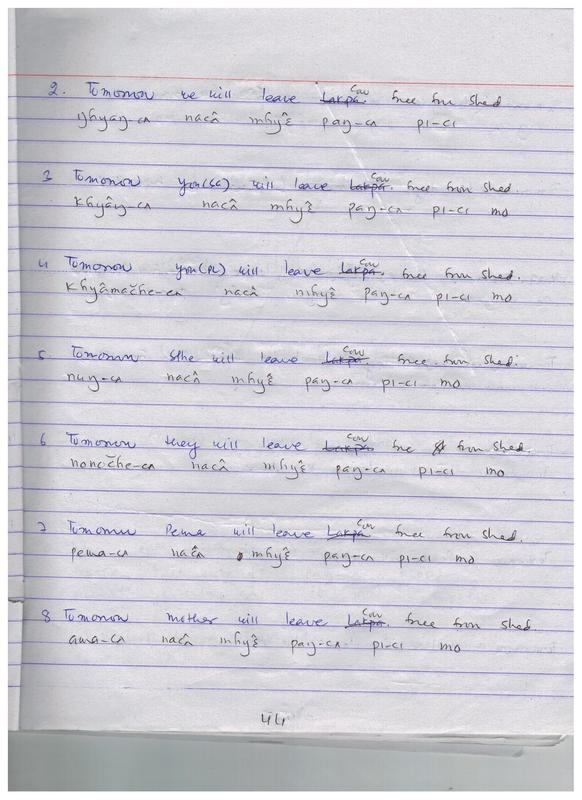 2. Tomorrow we will leave Lakpa Cow free from shed
ŋhyaŋ-cʌ nacʌ̂ mhyɛ̂ paŋ-cʌ pi-ci
3 Tomorrow you(SG) will leave Lakpa Cow free from shed.
khyâŋ-cʌ nacʌ̂ mhyɛ̂ paŋ-cʌ pi-ci mo
4 Tomorrow you(PL) will leave Lakpa Cow free from shed.
khyâmač̌he-cʌ nacʌ̂ mhyɛ̂ paŋ-cʌ pi-ci mo
5 Tomorrow S/he will leave Lakpa Cow free from shed.
nuŋ-cʌ nacʌ̂ mhyɛ̂ paŋ-cʌ pi-ci mo
6 Tomorrow they will leave Lakpa Cow free from shed.
nonočhe-cʌ nacʌ̂ mhyɛ̂ paŋ-cʌ pi-ci mo
7 Tomorrow Pema will leave Lakpa Cow free from shed.
pema-cʌ nacʌ̂ mhyɛ̂ paŋ-cʌ pi-ci mo
8 Tomorrow mother will leave Lakpa Cow free from shed.
ama-cʌ nacʌ̂ mhyɛ̂ paŋ-cʌ pi-ci mo
44